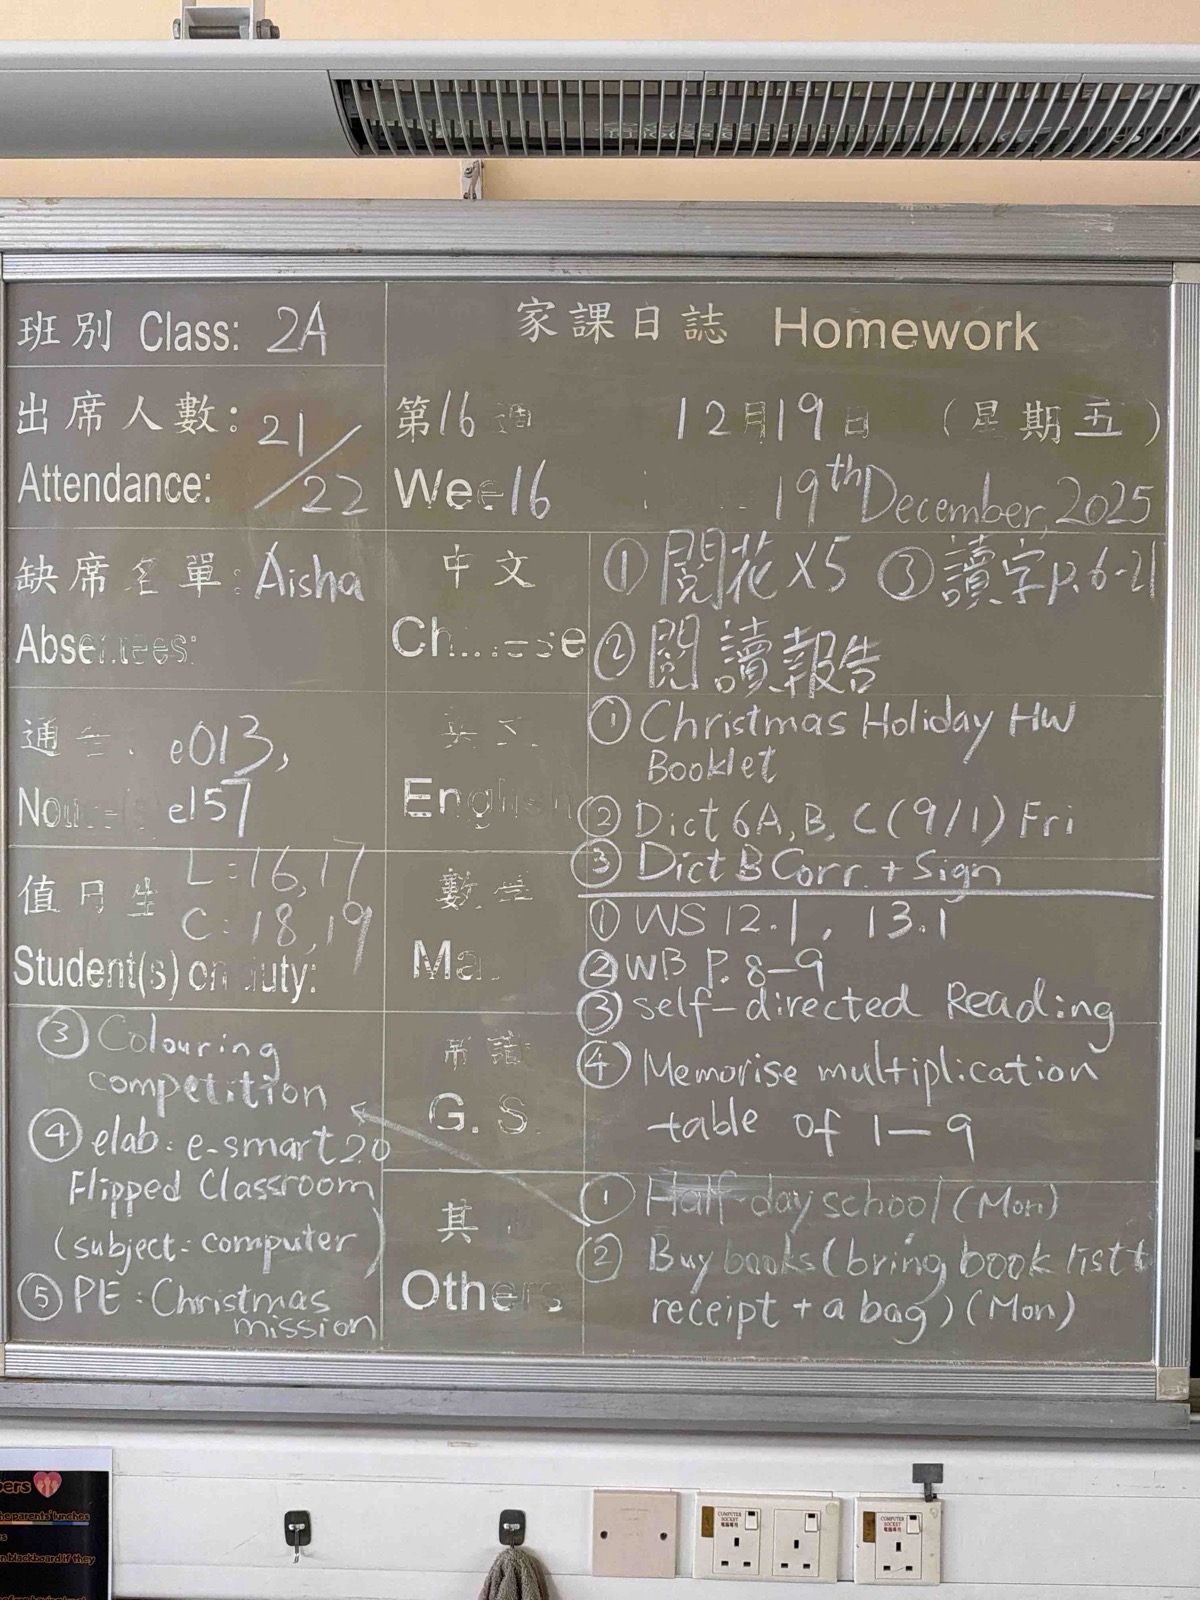 班別 Class: 2A
家課日誌 Homework
出席人數: 21/22
Attendance:
第16週 12月19日 (星期五)
Week 16 19th December, 2025
缺席名單: Aisha
Absentees:
通告: e013,
e157
值日生 L: 16, 17
C: 18, 19
Student(s) on duty:
中文
Chinese
① 閱花 x5 ③ 讀字 p.6-21
② 閱讀報告
英文
English
① Christmas Holiday HW
Booklet
② Dict 6A, B, C (9/1) Fri
③ Dict B Corr. + Sign
數學
Ma
① WS 12.1, 13.1
② WB P. 8-9
③ self-directed Reading
④ Memorise multiplication
table of 1-9
常識
G. S.
其
Others
① Half-day school (Mon)
② Buy books (bring book list +
receipt + a bag) (Mon)
③ Colouring
competition
④ elab: e-smart 2.0
Flipped Classroom
(subject: computer)
⑤ PE: Christmas
mission
he parents' lunches
n blackboard if they
COMPUTER
SOCKET
電腦專用
COMPUTER
SOCKET
電腦專用